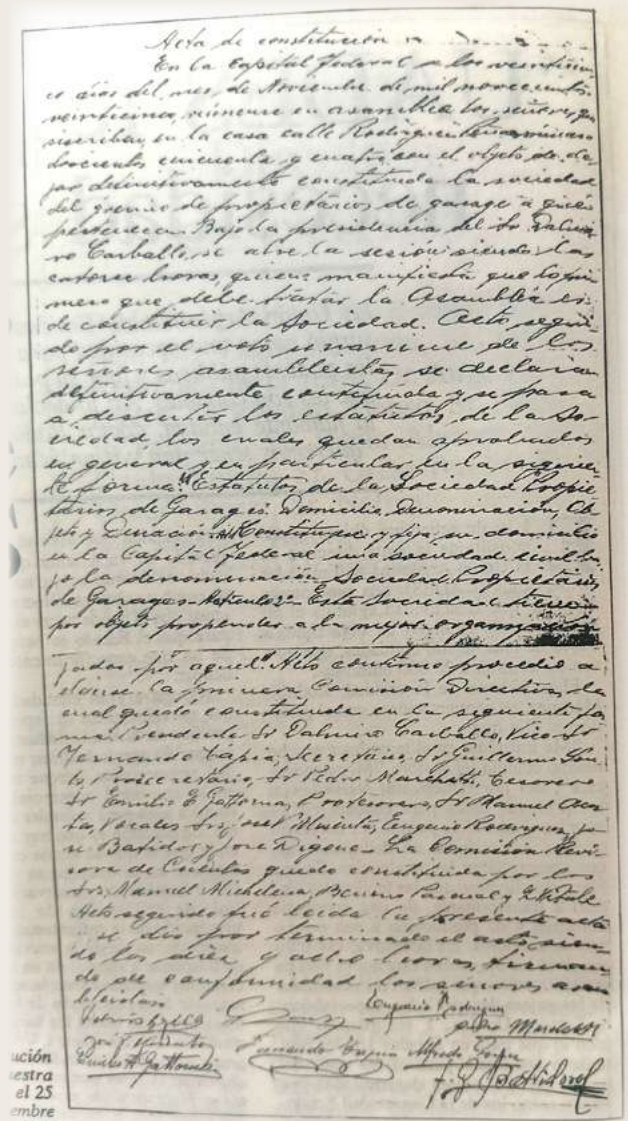 Acta de constitución
En la Capital Federal a los veinticin-
co días del mes de Noviembre de mil novecientos
veinticinco, reúnense en asamblea los señores que
suscriben, en la casa calle Rodríguez Peña número
doscientos cincuenta y cuatro con el objeto de de-
jar definitivamente constituida la sociedad
del gremio de propietarios de garage a que
pertenecen. Bajo la presidencia del Sr Dalmi-
ro Carballo, se abre la sesión siendo las
catorce horas, quien manifiesta que lo pri-
mero que debe tratar la Asamblea es
de constituir la Sociedad. Acto segui-
do por el voto unanime de los
señores asambleistas, se declara
definitivamente constituida y se pasa
a discutir los estatutos de la So-
ciedad, los cuales quedan aprobados
en general y en particular en la siguien-
te forma: "Estatutos de la Sociedad Propie-
tarios de Garages. Domicilio, Denominación, Ob-
jeto y Duración. Constitúyese y fija su domicilio
en la Capital Federal una sociedad civil ba-
jo la denominación Sociedad Propietarios
de Garages - Artículo 2º - Esta Sociedad tiene
por objeto propender a la mejor organización
por aquel." Acto continuo procedió a
la primera Comisión Directiva, la
cual quedó constituida en la siguiente for-
ma: Presidente Sr Dalmiro Carballo, Vice Sr
Fernando Tapia, Secretario, Sr Guillermo
Prosecretario, Sr Pedro Marchetti, Tesorero
Sr Emilio E. Gattorna, Protesorero, Sr Manuel Acos-
ta, Vocales Srs, José P. Eugenio Rodriguez, Jo-
sé Batidos y Jose Digone - La Comisión Revi-
sora de Cuentas quedo constituida por los
Srs, Manuel Michelena, Benigno Pascual y Vitale
Acto seguido fué leida la presente acta
y se dió por terminado el acto sien-
do las diez y ocho horas, firman-
do de conformidad los señores asam-
bleistas
Eugenio Rodriguez
Pedro Marchetti
Fernando Tapia Alfredo
ución
uestra
el 25
embre